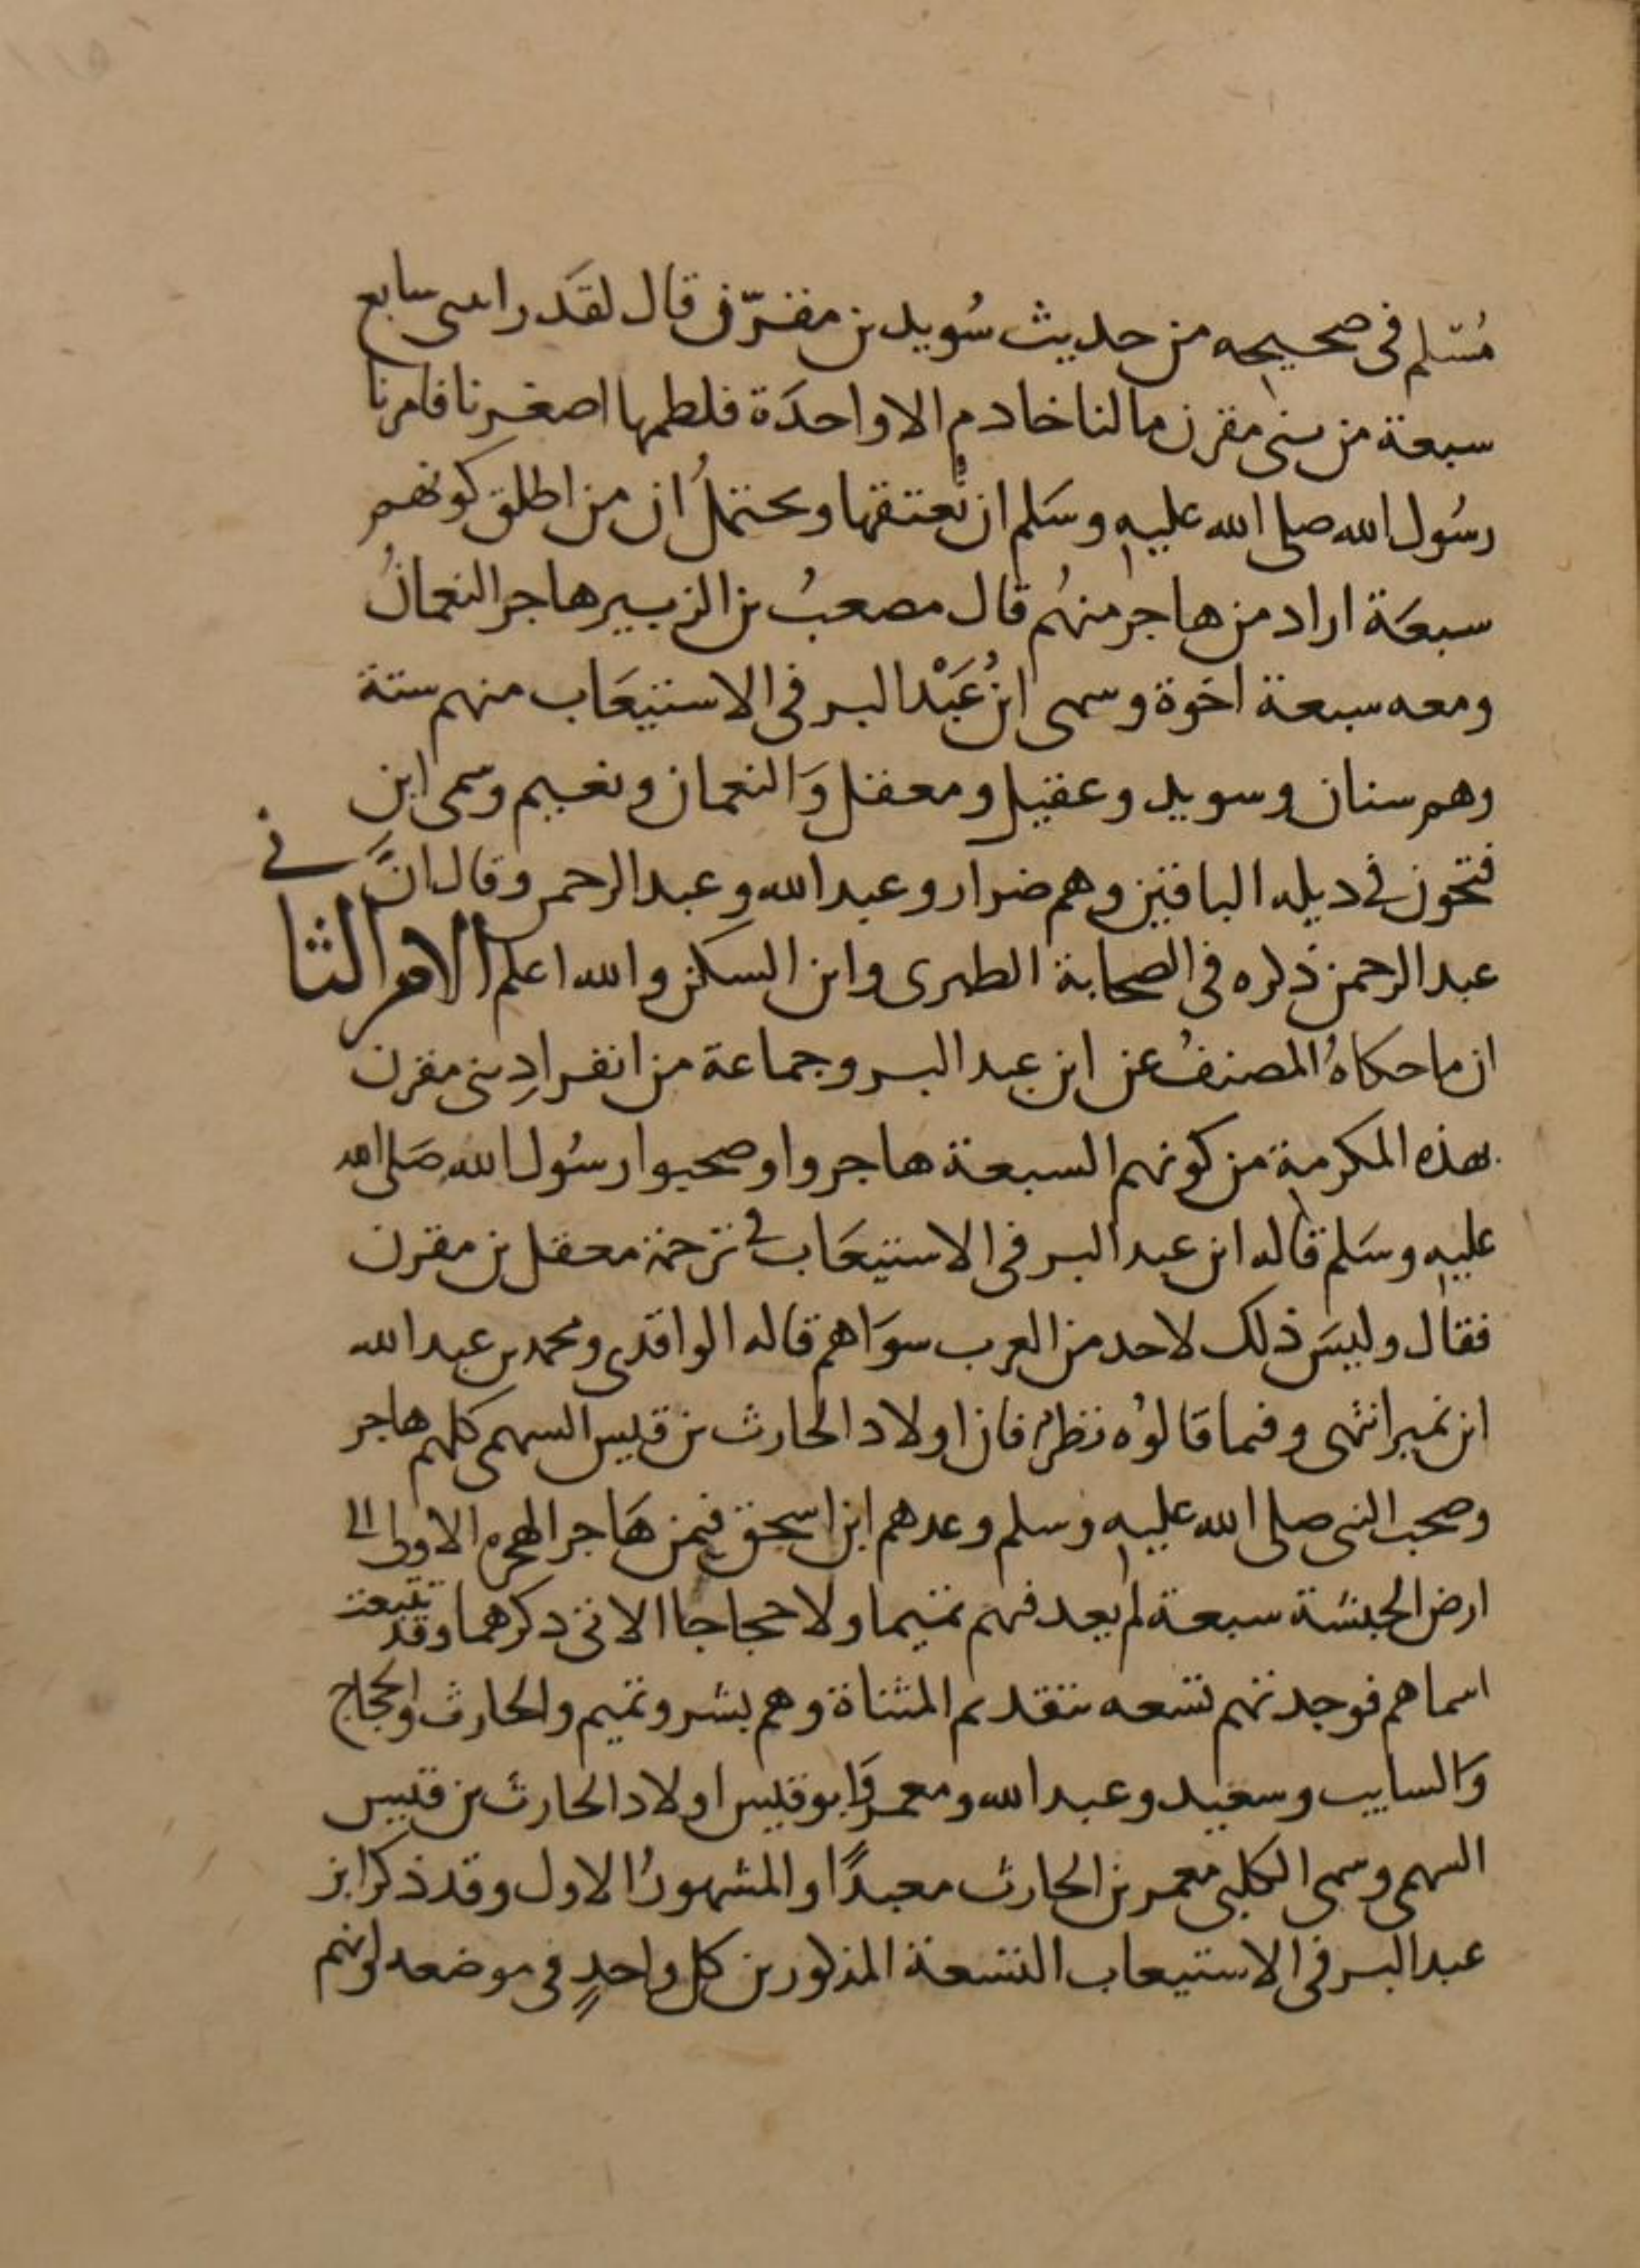 مُسْلم فى صحيحه من حديث سُويد بن مقرّن قال لقَد راىتنى سابع
سبعة من بنى مقرن مالنا خادم الا واحدَة فلطمها اصغرنا فامرنا
رسُول الله صلى الله عليه وسَلم ان نُعتقها ويحتملُ ان من اطلق كونهم
سبعَة اراد من هاجر منهُم قال مصعبُ بن الزبير هاجر النعمانُ
ومعه سبعة اخوة وسمى ابنُ عَبْد البر فى الاستيعَاب منهم ستة
وهم سنان وسويد وعقيل ومعقل وَالنعمان ونعيم وسمى ابن
فتحون فى ديله الباقين وهم ضرار وعبد الله وعبد الرحمن وقال انَّ
عبد الرحمن ذكره فى الصحابة الطبرى وابن السكن والله اعلم الامر الثانى
ان ما حكاهُ المصنفُ عن ابن عبد البر وجماعة من انفرادِ بنى مقرن
بهذه المكرمة من كونهم السبعة هاجروا وصحبوا رسُول الله صَلى الله
عليه وسَلم قاله ابن عبد البر فى الاستيعَاب فى ترجمة معقل بن مقرن
فقال وليسَ ذلك لاحد من العرب سوَاهم قاله الواقدى ومحمد بن عبد الله
ابن نمير انتهى وفيما قالوُه نظرٌ فان اولاد الحارث بن قيس السهمى كلهم هاجر
وصحب النبى صلى الله عليه وسلم وعدهم ابن اسحق فيمن هَاجر الهجره الاولى الى
ارض الحبشة سبعة لم يعد فيهم تميما ولا حجاجا الاتى ذكرهما وقد تتبعت
اسماهم فوجدتهم تسعه بتقديم المثناة وهم بشر وتميم والحارث والحجاج
وَالسايب وسعيد وعبد الله ومعمر وَابو قيس اولاد الحارث بن قيس
السهمى وسمى الكلبى معمر بن الحارث معبدًا والمشهورُ الاول وقد ذكر ابن
عبد البر فى الاستيعاب التسعة المذكورين كل واحدٍ فى موضعه لونهم